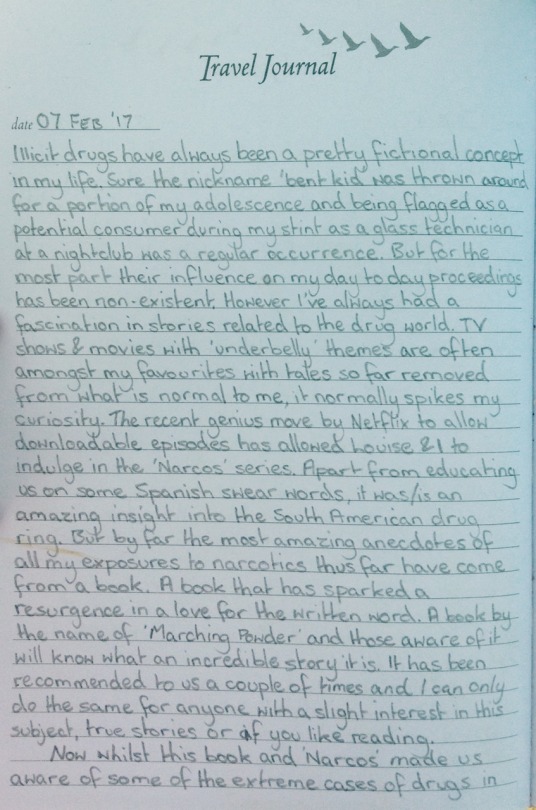 Travel Journal
date 07 FEB '17
Illicit drugs have always been a pretty fictional concept
in my life. Sure the nickname 'bent kid' was thrown around
for a portion of my adolescence and being flagged as a
potential consumer during my stint as a glass technician
at a nightclub was a regular occurrence. But for the
most part their influence on my day to day proceedings
has been non-existent. However I've always had a
fascination in stories related to the drug world. TV
shows & movies with 'underbelly' themes are often
amongst my favourites with tales so far removed
from what is normal to me, it normally spikes my
curiosity. The recent genius move by Netflix to allow
downloadable episodes has allowed Louise & I to
indulge in the 'Narcos' series. Apart from educating
us on some Spanish swear words, it was/is an
amazing insight into the South American drug
ring. But by far the most amazing anecdotes of
all my exposures to narcotics thus far have come
from a book. A book that has sparked a
resurgence in a love for the written word. A book by
the name of 'Marching Powder' and those aware of it
will know what an incredible story it is. It has been
recommended to us a couple of times and I can only
do the same for anyone with a slight interest in this
subject, true stories or if you like reading.
Now whilst this book and 'Narcos' made us
aware of some of the extreme cases of drugs in